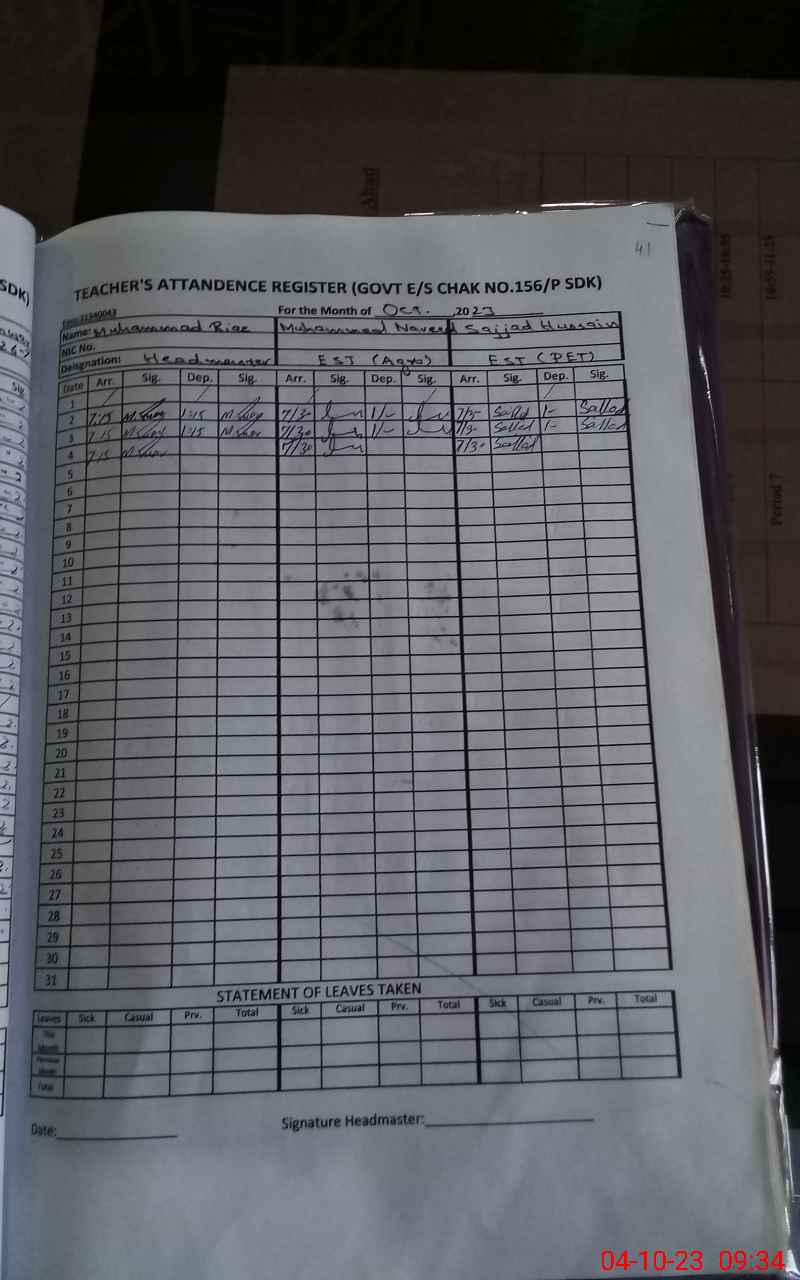 41
TEACHER'S ATTANDENCE REGISTER (GOVT E/S CHAK NO.156/P SDK)
For the Month of Oct. ,2023
Name: Muhammad Riaz Muhammad Naveed Sajjad Hussain
NIC No.
Deisgnation: Headmaster EST (Agro) EST (PET)
Date Arr. Sig. Dep. Sig. Arr. Sig. Dep. Sig. Arr. Sig. Dep. Sig.
1
2 7:15 1:15 7/30 1/- 7/15 Sajjad 1- Sajjad
3 7:15 1:15 7/30 1/- 7/30 Sajjad 1- Sajjad
4 7:15 7/30 7/30 Sajjad
5
6
7
8
9
10
11
12
13
14
15
16
17
18
19
20
21
22
23
24
25
26
27
28
29
30
31
STATEMENT OF LEAVES TAKEN
Leaves Sick Casual Prv. Total Sick Casual Prv. Total Sick Casual Prv. Total
This Month
Previous Month
Total
Date: Signature Headmaster:
SDK)
Sig
Abad
10:25-10:55
10:55-11:25
Period 7
04-10-23 09:34